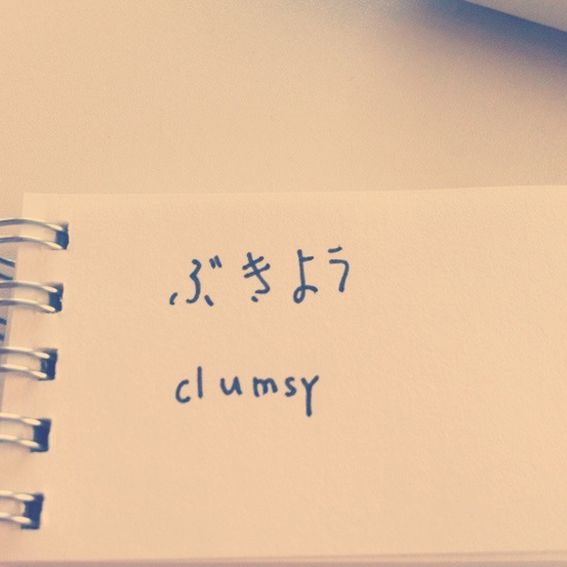 ぶきよう
clumsy